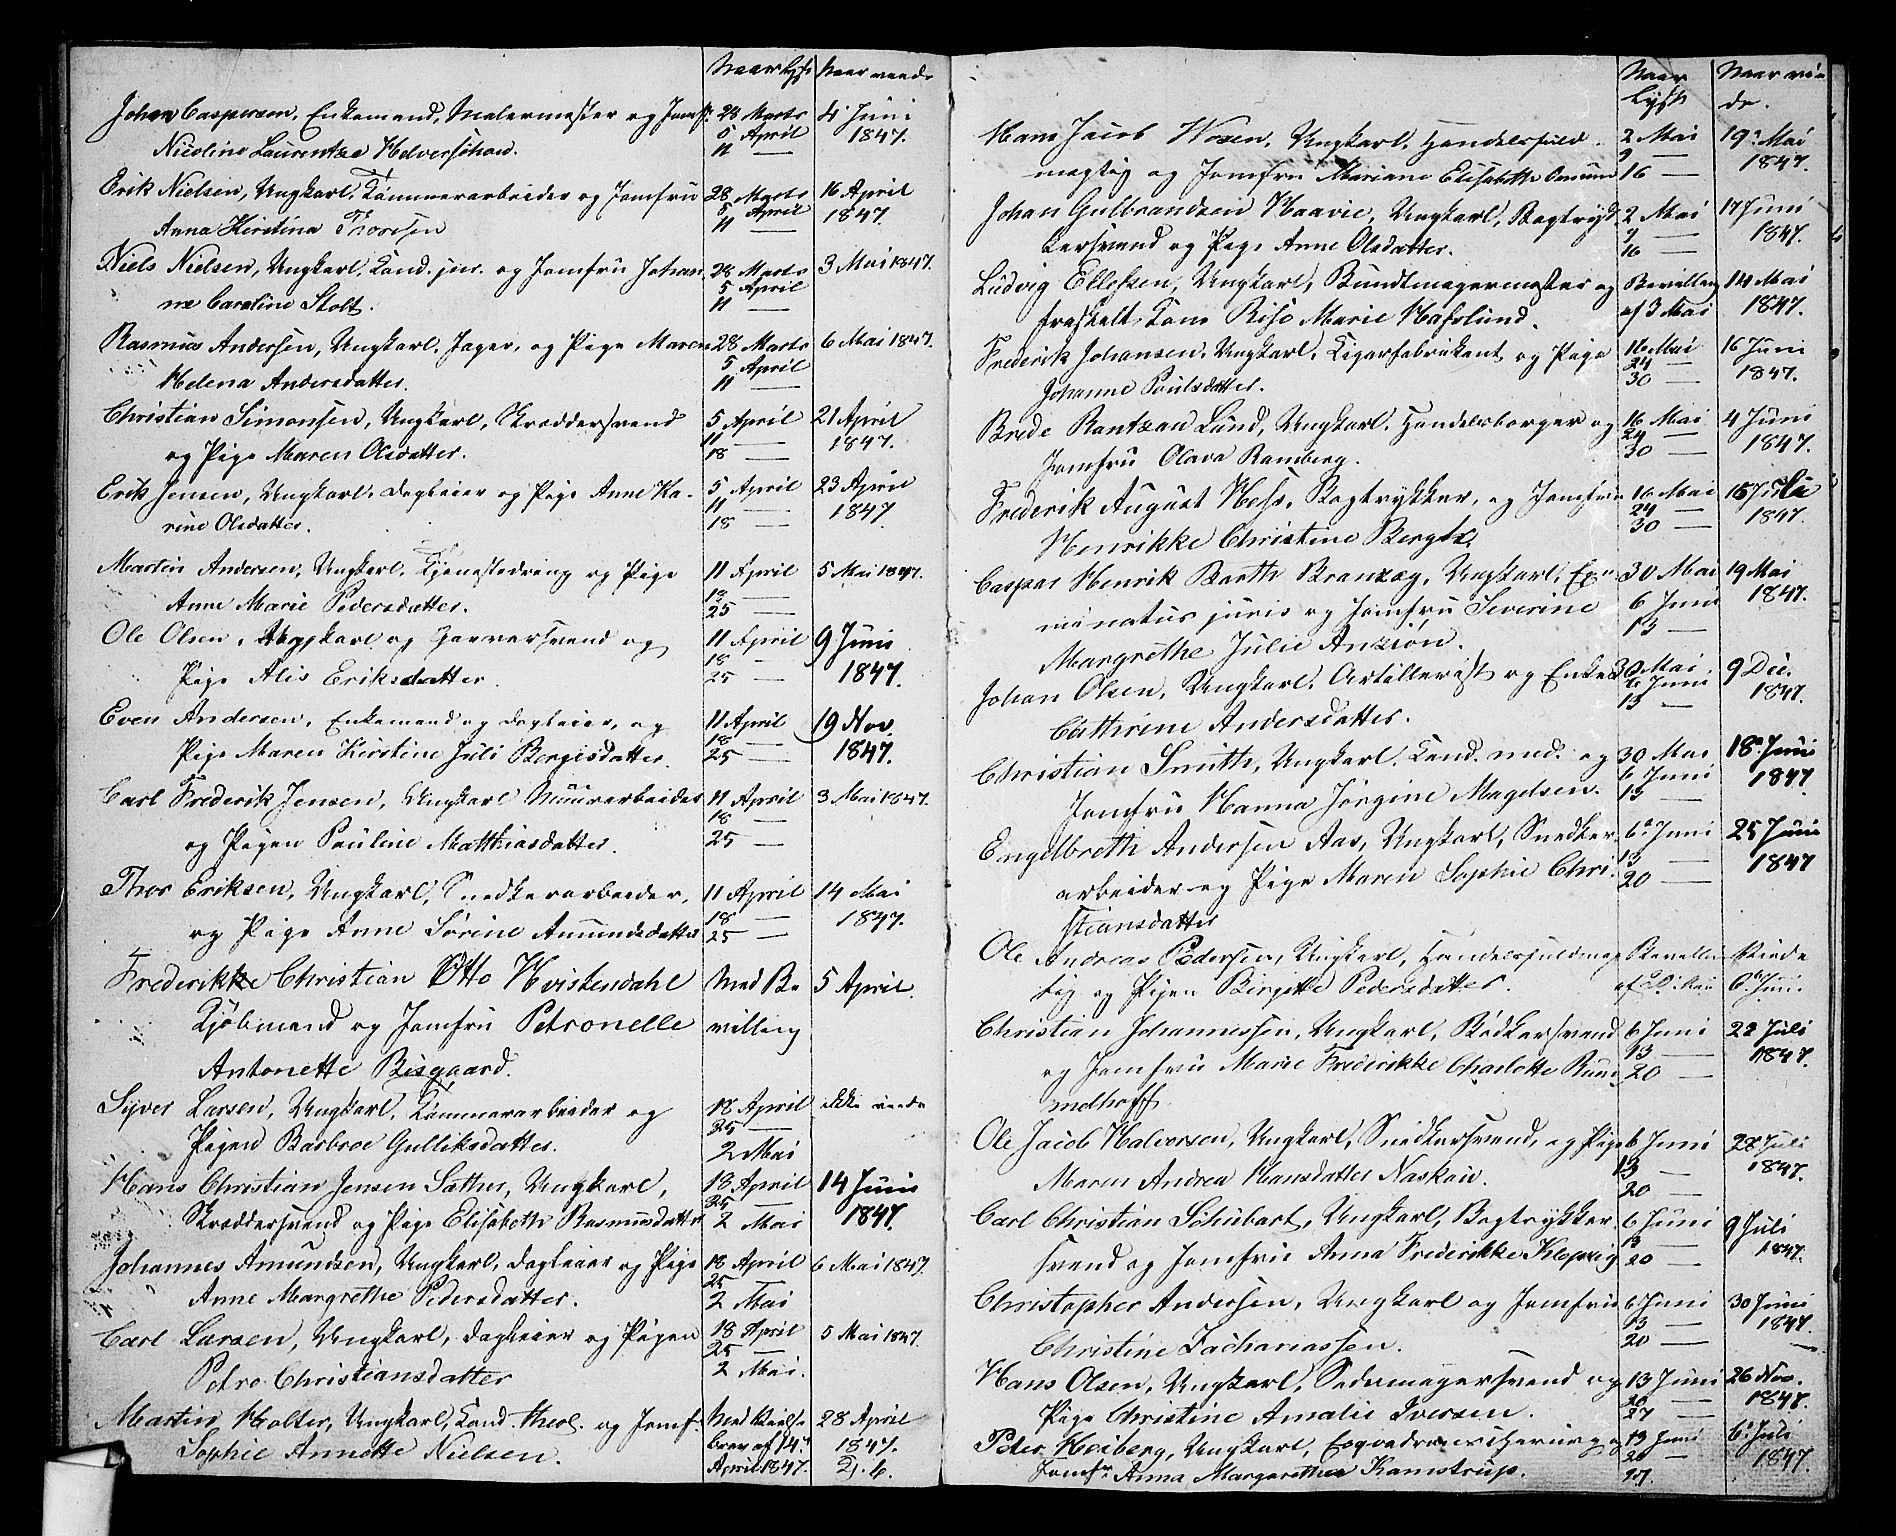 Naar lyst Naar viede
Johan Caspersen, Enkemand, Malermester og Jomfr. 28 Marts 4 Juni
5 April 1847.
Nicoline Laurentze Helverschou. 11 —
Erik Nielsen, Ungkarl, Tømmerarbeider og Jomfru 28 Marts 16 April
5 April 1847.
Anna Kirstina Thorssen 11 —
Niels Nielsen, Ungkarl, Kand. jur. og Jomfru Johan- 28 Marts 3 Mai 1847.
5 April
ne Caroline Stolt. 11 —
Rasmus Andersen, Ungkarl, Jager, og Pige Maren 28 Marts 6 Mai 1847.
5 April
Helena Andersdatter. 11 —
Christian Simonsen, Ungkarl, Skræddersvend 5 April 21 April
11 — 1847.
og Pige Maren Olsdatter. 18 —
Erik Jensen, Ungkarl, Dagleier og Pige Anne Ka- 5 April 23 April
11 — 1847
rine Olsdatter. 18 —
Martin Andersen, Ungkarl, Tjenestedreng og Pige 11 April 5 Mai 1847.
18 —
Anne Marie Pedersdatter. 25 —
Ole Olsen, Ungkarl og Garversvend og 11 April 9 Juni
18 —
Pige Alis Eriksdatter. 25 — 1847.
Even Andersen, Enkemand og Dagleier, og 11 April 19 Nov.
18 —
Pige Maren Kirstine Juli Bergisdatter. 25 — 1847.
Carl Frederik Jensen, Ungkarl Muurarbeider 11 April 3 Mai 1847.
18 —
og Pigen Pauline Matthiasdatter. 25 —
Thor Eriksen, Ungkarl, Snedkerarbeider, 11 April 14 Mai
18 — 1847.
og Pige Anne Sørine Amundsdatter 25 —
Frederikke Christian Otto Hvistendahl Med Be 5 April.
Kjøbmand og Jomfru Petronelle villing
Antonette Bisgaard.
Syver Larsen, Ungkarl, Tømmerarbeider og 18 April Ikke viede
25 —
Pigen Barbroe Gulliksdatter. 2 Mai
Hans Christian Jensen Sather, Ungkarl, 18 April 14 Juni
25 —
Skræddersvend og Pige Elisabeth Rasmusdatter 2 Mai 1847.
Johannes Amundsen, Ungkarl, Dagleier og Pige 18 April 6 Mai 1847.
25 —
Anne Margrethe Pedersdatter. 2 Mai
Carl Larsen, Ungkarl, Dagleier og Pigen 18 April 5 Mai 1847.
25 —
Petro Christiansdatter 2 Mai.
Martin Holter, Ungkarl, Kand. theol. og Jomf. Med Vielse 28 April
brev af 14de 1847.
Sophie Annette Nielsen. April 1847.
Naar lyst Naar viede.
Hans Jacob Wosen, Ungkarl, Handelsfuld- 2 Mai 19 Mai
9 — 1847.
mægtig og Jomfru Mariane Elisabeth 16 —
Johan Gulbrandsen Haavie, Ungkarl, Bogtryk- 2 Mai 17 Juni
9 — 1847.
kersvend og Pige Anne Olsdatter. 16 —
Ludvig Ellefsen, Ungkarl, Bundtmagermester og Bevilling 14 Mai
fraskelt Kone Rise Marie Hafslund. af 3 Mai 1847.
Frederik Johansen, Ungkarl, Cigarfabrikant og Pige 16 Mai 16 Juni
24 — 1847.
Johanne Poulsdatter. 30 —
Brede Rantzau Lund, Ungkarl, Handelsborger og 16 Mai 4 Juni
24 — 1847.
Jomfru Olava Ramberg. 30 —
Frederik August Hess, Bogtrykker, og Jomfru 16 Mai 15 Juli
24 — 1847.
Henrikke Christine Bergh. 30 —
Caspar Henrik Barth Branzæg, Ungkarl, Exa- 30 Mai 19 Mai
minatus juris og Jomfru Severine 6 Juni 1847.
13 —
Margrethe Julie Anziøn.
Johan Olsen, Ungkarl, Artillerist og Enken 30 Mai 9 Dec.
6 Juni 1847.
Cathrine Andersdatter. 13 —
Christian Smith, Ungkarl, Kand. med. og 30 Mai 18 Juni
6 Juni 1847
Jomfru Hanna Jørgine Magelsen. 13 —
Engelbreth Andersen Aas, Ungkarl, Snedker- 6 Juni 25 Juni
13 — 1847
arbeider og Pige Maren Sophie Chri- 20 —
stiansdatter
Ole Andreas Pedersen, Ungkarl, Handelsfuldmæg- Bevilling Viede
tig og Pigen Birgitte Pedersdatter. 6 Juni
Christian Johannessen, Ungkarl, Bødkersvend 6 Juni 22 Juli
13 — 1847.
og Jomfru Marie Frederikke Charlotte Run- 20 —
mdhoff.
Ole Jacob Halvorsen, Ungkarl, Snedkersvend, og Pige 6 Juni 28 Juli
13 — 1847.
Maren Andrea Hansdatter Naskau. 20 —
Carl Christian Schubart, Ungkarl, Bogtrykker- 6 Juni 9 Juli
13 — 1847.
svend og Jomfru Anna Frederikke Klepzig 20 —
Christopher Andersen, Ungkarl og Jomfru 6 Juni 30 Juni
13 — 1847.
Christine Zachariassen. 20 —
Hans Olsen, Ungkarl, Sadelmagersvend og 13 Juni 26 Nov.
20 — 1847.
Pige Christine Amalie Iversen. 27 —
Peter Heiberg, Ungkarl, og 13 Juni 6 Juli
20 — 1847.
Jomfr Anna Margarethe Kamstrup. 27.